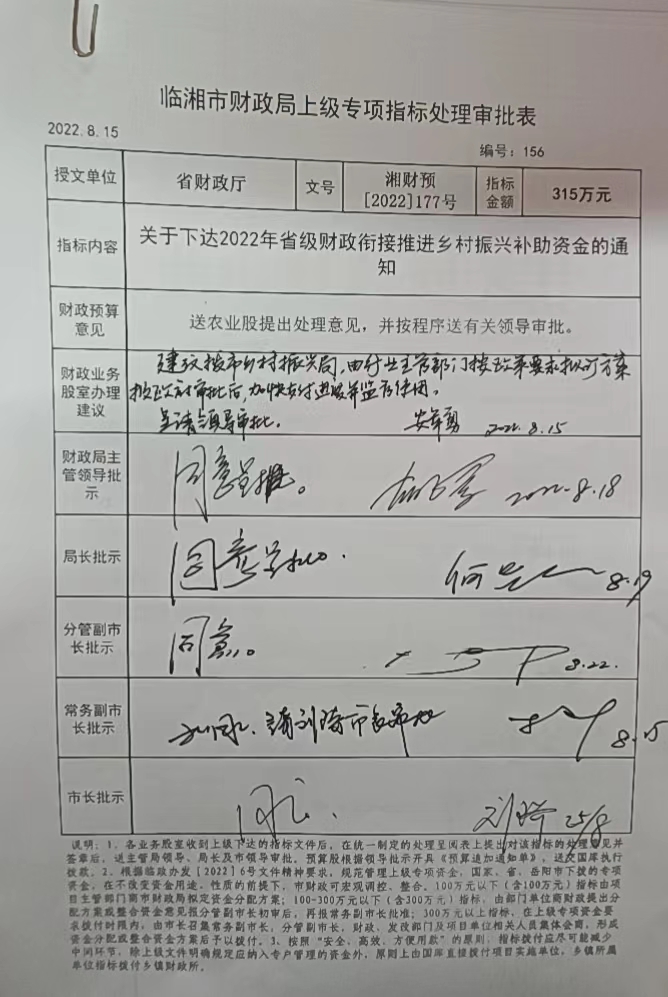 临湘市财政局上级专项指标处理审批表
2022.8.15
编号：156
授文单位 省财政厅 文号 湘财预[2022]177号 指标金额 315万元
指标内容 关于下达2022年省级财政衔接推进乡村振兴补助资金的通知
财政预算意见 送农业股提出处理意见，并按程序送有关领导审批。
财政业务股室办理建议
建议拨市乡村振兴局，由行业主管部门按政策要求拟订方案
报政府审批后，加快支付进度并监管使用。
呈请领导审批。 2022.8.15
财政局主管领导批示 同意呈批。 2022.8.18
局长批示 同意呈批. 8.19
分管副市长批示 同意。 8.22.
常务副市长批示 请刘琦市长审批 8.25
市长批示 同意. 刘琦 25/8
说明：1、各业务股室收到上级下达的指标文件后，在统一制定的处理呈阅表上提出对该指标的处理意见并
签章后，送主管局领导、局长及市领导审批。预算股根据领导批示开具《预算追加通知单》，送交国库执行
拨款。2、根据临政办发[2022]6号文件精神要求，规范管理上级专项资金，国家、省、岳阳市下拨的专项
资金，在不改变资金用途、性质的前提下，市财政可宏观调控、整合。100万元以下（含100万元）指标由项
目主管部门商市财政局拟定资金分配方案；100-300万元以下（含300万元）指标，由部门单位商财政提出分
配方案或整合资金意见报分管副市长初审后，再报常务副市长批准；300万元以上指标，在上级专项资金要
求拨付时限内，由市长召集常务副市长、分管副市长、财政、发改部门及项目单位相关人员集体会商，形成
资金分配或整合资金方案后予以拨付。3、按照“安全、高效、方便用款”的原则，指标拨付应尽可能减少
中间环节，除上级文件明确规定应纳入专户管理的资金外，原则上由国库直接拨付项目实施单位，乡镇所属
单位指标拨付乡镇财政所。